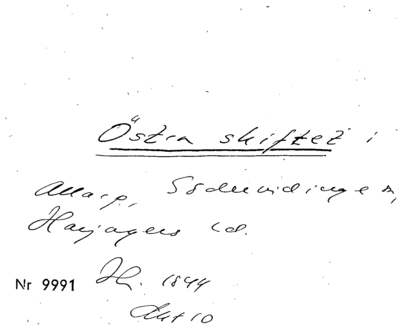 Östra skiftet i
Allarp, Södervidinge sn,
Harjagers hd.
Nr 9991 Jh. 1844
Akt 10